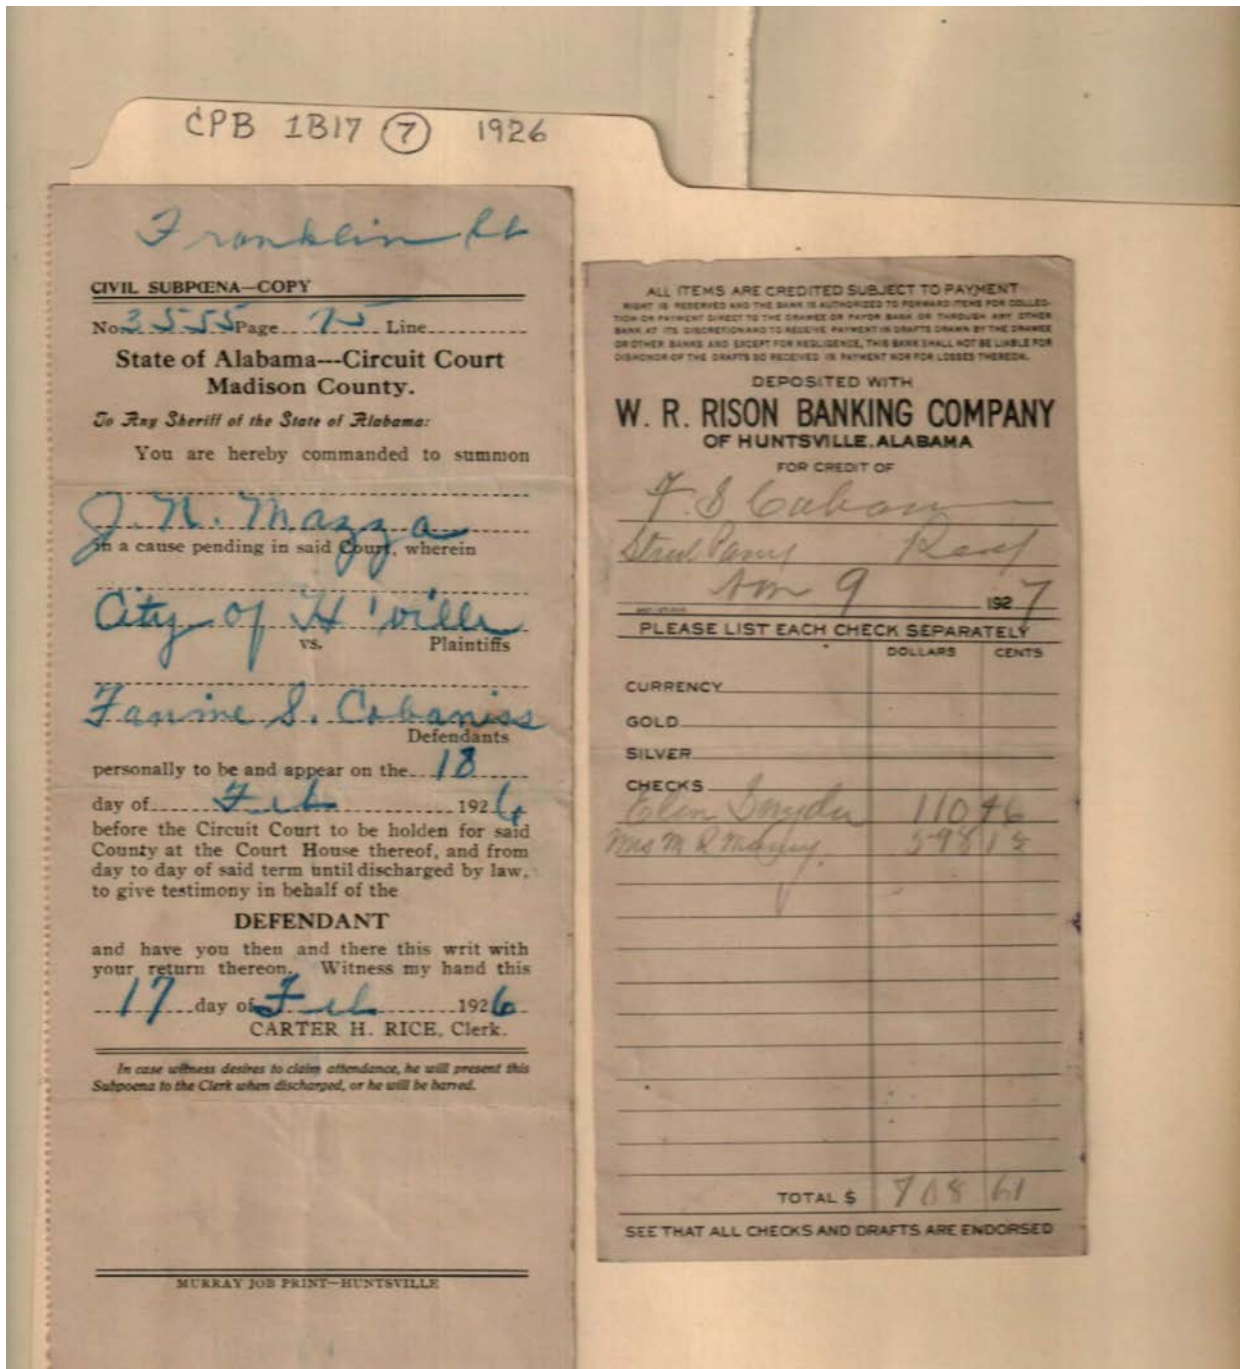 CPB 1B17 7 1926
Franklin
CIVIL SUBPŒNA—COPY
No. 3555 Page 75 Line
State of Alabama---Circuit Court
Madison County.
To Any Sheriff of the State of Alabama:
You are hereby commanded to summon
J. N. Mazza
in a cause pending in said Court, wherein
City of H'ville
vs. Plaintiffs
Fannie S. Cabaniss
Defendants
personally to be and appear on the 18
day of Feb 1926
before the Circuit Court to be holden for said
County at the Court House thereof, and from
day to day of said term until discharged by law,
to give testimony in behalf of the
DEFENDANT
and have you then and there this writ with
your return thereon. Witness my hand this
17 day of Feb 1926
CARTER H. RICE, Clerk.
In case witness desires to claim attendance, he will present this
Subpoena to the Clerk when discharged, or he will be barred.
MURRAY JOB PRINT—HUNTSVILLE
ALL ITEMS ARE CREDITED SUBJECT TO PAYMENT
RIGHT IS RESERVED AND THE BANK IS AUTHORIZED TO FORWARD ITEMS FOR COLLEC-
TION OR PAYMENT DIRECT TO THE DRAWEE OR PAYOR BANK OR THROUGH ANY OTHER
BANK AT ITS DISCRETION AND TO RECEIVE PAYMENT IN DRAFTS DRAWN BY THE DRAWEE
OR OTHER BANKS AND EXCEPT FOR NEGLIGENCE, THIS BANK SHALL NOT BE LIABLE FOR
DISHONOR OF THE DRAFTS SO RECEIVED IN PAYMENT NOR FOR LOSSES THEREON.
DEPOSITED WITH
W. R. RISON BANKING COMPANY
OF HUNTSVILLE, ALABAMA
FOR CREDIT OF
F. S. Caban
Street
9 1927
PLEASE LIST EACH CHECK SEPARATELY
DOLLARS CENTS
CURRENCY
GOLD
SILVER
CHECKS
Snyder 110 46
Mrs M 598 15
TOTAL $ 708 61
SEE THAT ALL CHECKS AND DRAFTS ARE ENDORSED